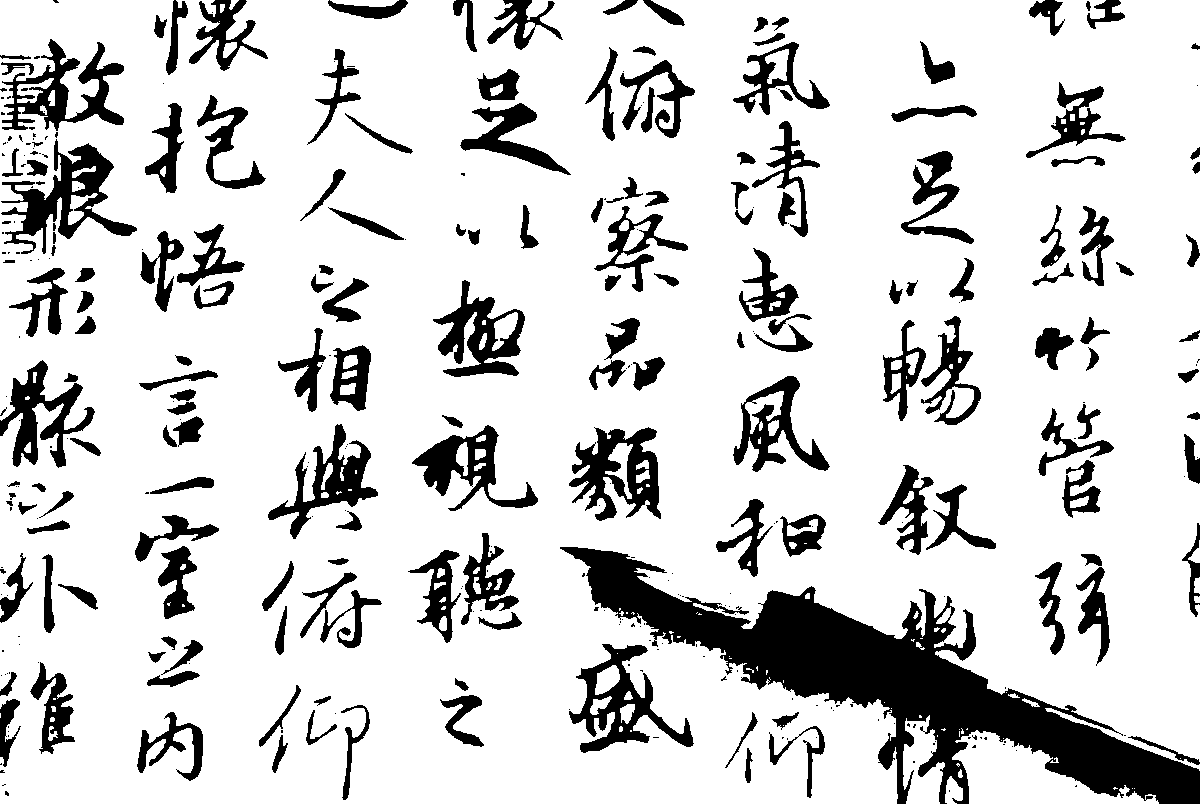 無絲竹管弦
亦足以暢叙幽情
氣清惠風和仰
俯察品類盛
懷足以極視聽之
夫人之相與俯仰
懷抱悟言一室之内
放浪形骸之外雖